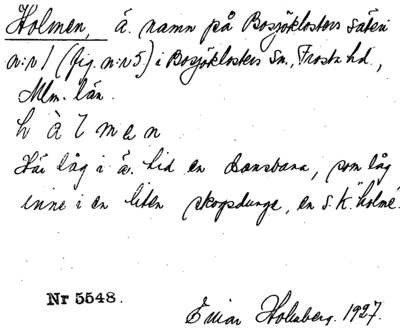 Holmen, å. namn på Bosjöklosters säteri
n:r 1 (fig. n:r 5) i Bosjöklosters sn., Frosta hd.,
Mlm. län.
h å l m e n
Här låg i ä. tid en dansbana, som låg
inne i en liten skogsdunge, en s. k. "holme".
Nr 5548.
Einar Holmberg. 1927.